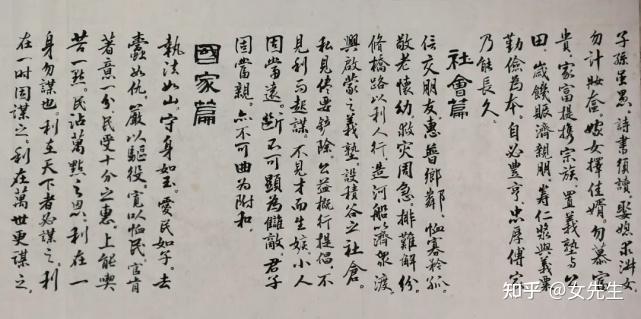 子孫虽愚，詩書須讀。娶媳求淑女，
勿計妝奩，嫁女擇佳婿，勿慕富
貴。家富提携宗族，置義塾与公
田，歲饑賑濟親朋，籌仁漿與義粟
勤儉為本，自必豐亨，忠厚傳家
乃能長久。
社會篇
信交朋友，惠普鄉鄰，恤寡矜孤。
敬老懷幼，救災周急，排難解紛。
修橋路以利人行，造河船以濟衆渡。
興啟蒙之義塾，設積谷之社倉。
私見儘要鏟除，公益概行提倡，不
見利而起謀。不見才而生嫉，小人
固當遠。斷不可顯為讎敵，君子
固當親。亦不可曲為附和
國家篇
執法如山，守身如玉，愛民如子。去
蠹如仇，嚴以驅役。寬以恤民，官肯
著意一分民受十分之惠，上能喫
苦一點。民沾萬點之恩，利在一
身勿謀也。利在天下者必謀之，利
在一时固謀之，利在萬世更謀之。
知乎 @女先生